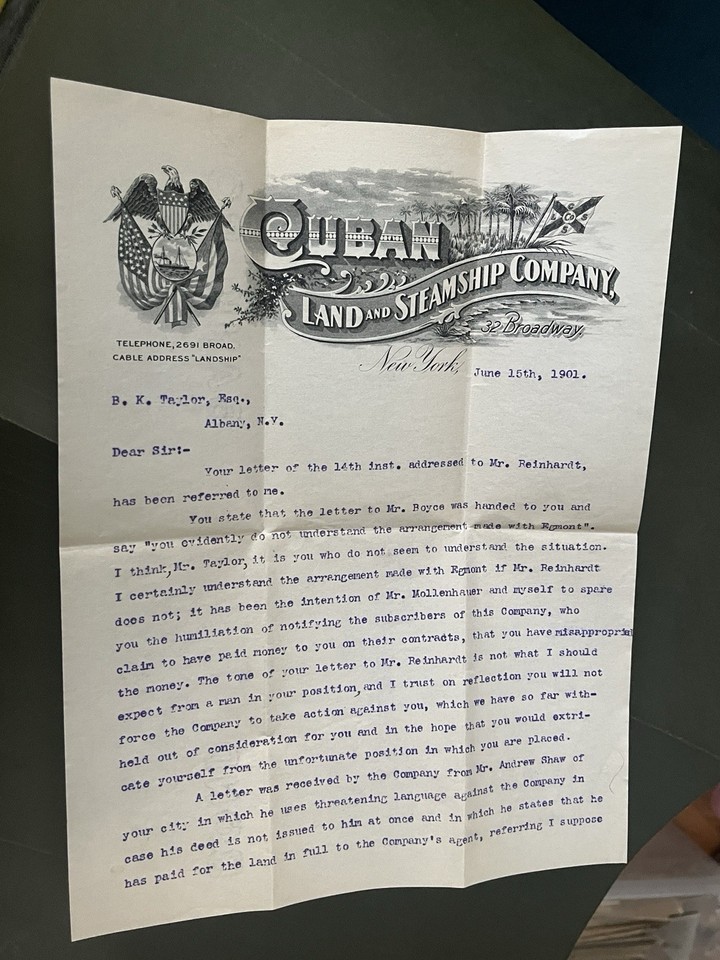 CUBAN
LAND AND STEAMSHIP COMPANY,
32 Broadway,
TELEPHONE, 2691 BROAD.
CABLE ADDRESS "LANDSHIP"
New York, June 15th, 1901.
B. K. Taylor, Esq.,
Albany, N.Y.
Dear Sir:-
Your letter of the 14th inst. addressed to Mr. Reinhardt,
has been referred to me.
You state that the letter to Mr. Boyce was handed to you and
say "you evidently do not understand the arrangement made with Egmont".
I think, Mr. Taylor, it is you who do not seem to understand the situation.
I certainly understand the arrangement made with Egmont if Mr. Reinhardt
does not; it has been the intention of Mr. Mollenhauer and myself to spare
you the humiliation of notifying the subscribers of this Company, who
claim to have paid money to you on their contracts, that you have misappropriat
the money. The tone of your letter to Mr. Reinhardt is not what I should
expect from a man in your position, and I trust on reflection you will not
force the Company to take action against you, which we have so far with-
held out of consideration for you and in the hope that you would extri-
cate yourself from the unfortunate position in which you are placed.
A letter was received by the Company from Mr. Andrew Shaw of
your city in which he uses threatening language against the Company in
case his deed is not issued to him at once and in which he states that he
has paid for the land in full to the Company's agent, referring I suppose